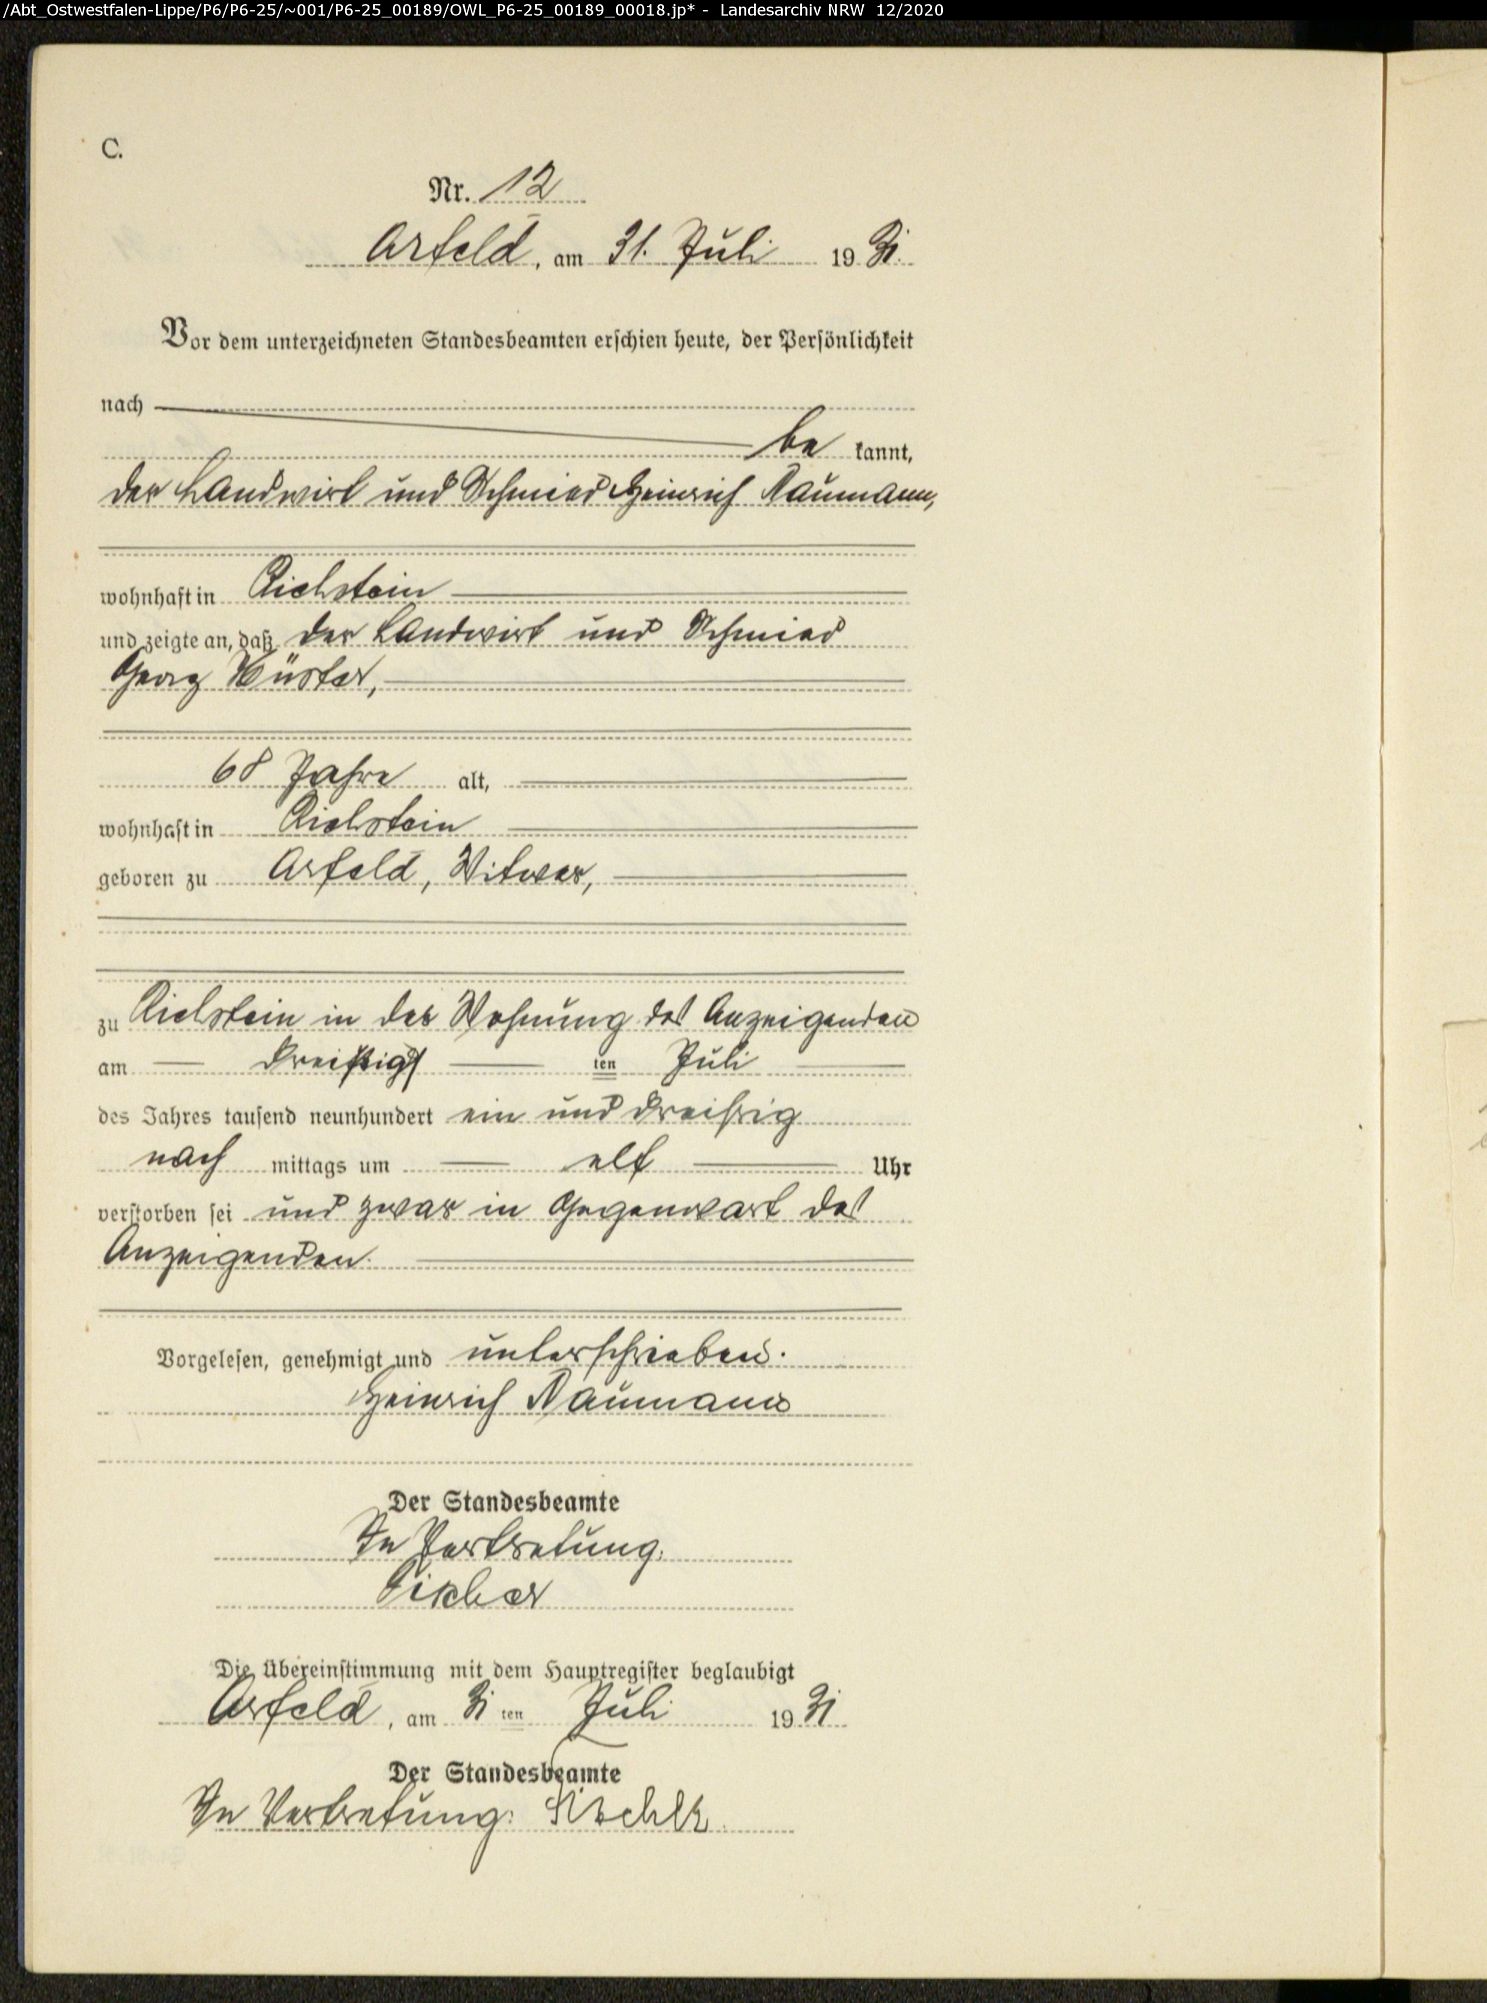 /Abt_Ostwestfalen-Lippe/P6/P6-25/~001/P6-25_00189/OWL_P6-25_00189_00018.jp* - Landesarchiv NRW 12/2020
C.
Nr. 12
Arfeld, am 31. Juli 1931.
Vor dem unterzeichneten Standesbeamten erschien heute, der Persönlichkeit
nach
be kannt,
der Landwirt und Schmied Heinrich Naumann,
wohnhaft in Richstein
und zeigte an, daß der Landwirt und Schmied
Georg Küster,
68 Jahre alt,
wohnhaft in Richstein
geboren zu Arfeld, Witwer,
zu Richstein in der Wohnung des Anzeigenden
am dreißigs ten Juli
des Jahres tausend neunhundert ein und dreißig
nach mittags um elf Uhr
verstorben sei und zwar in Gegenwart des
Anzeigenden.
Vorgelesen, genehmigt und unterschrieben.
Heinrich Naumann
Der Standesbeamte
In Vertretung.
Die Übereinstimmung mit dem Hauptregister beglaubigt
Arfeld, am 31 ten Juli 1931
Der Standesbeamte
In Vertretung: